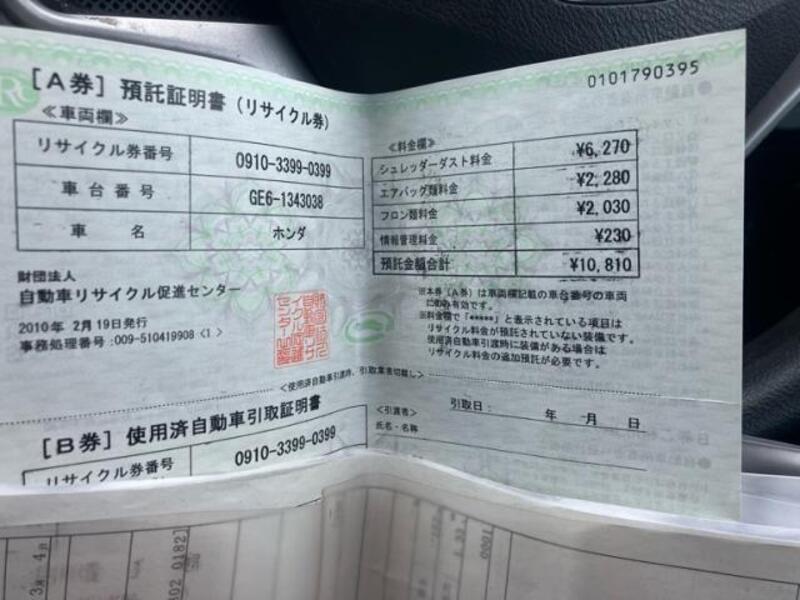 0101790395
[A券] 預託証明書(リサイクル券)
≪車両欄≫
リサイクル券番号 0910-3399-0399
車台番号 GE6-1343038
車名 ホンダ
≪料金欄≫
シュレッダーダスト料金 ¥6,270
エアバッグ類料金 ¥2,280
フロン類料金 ¥2,030
情報管理料金 ¥230
預託金額合計 ¥10,810
財団法人
自動車リサイクル促進センター
2010年 2月19日発行
事務処理番号:009-510419908 <1>
※本券(A券)は車両欄記載の車台番号の車両
にのみ有効です。
※料金欄で「*****」と表示されている項目は
リサイクル料金が預託されていない装備です。
使用済自動車引渡時に装備がある場合は
リサイクル料金の追加預託が必要です。
<使用済自動車引渡時、引取業者切離し>
[B券] 使用済自動車引取証明書
リサイクル券番号 0910-3399-0399
<引渡者> 引取日: 年 月 日
氏名・名称
3月 4日
802 0182]